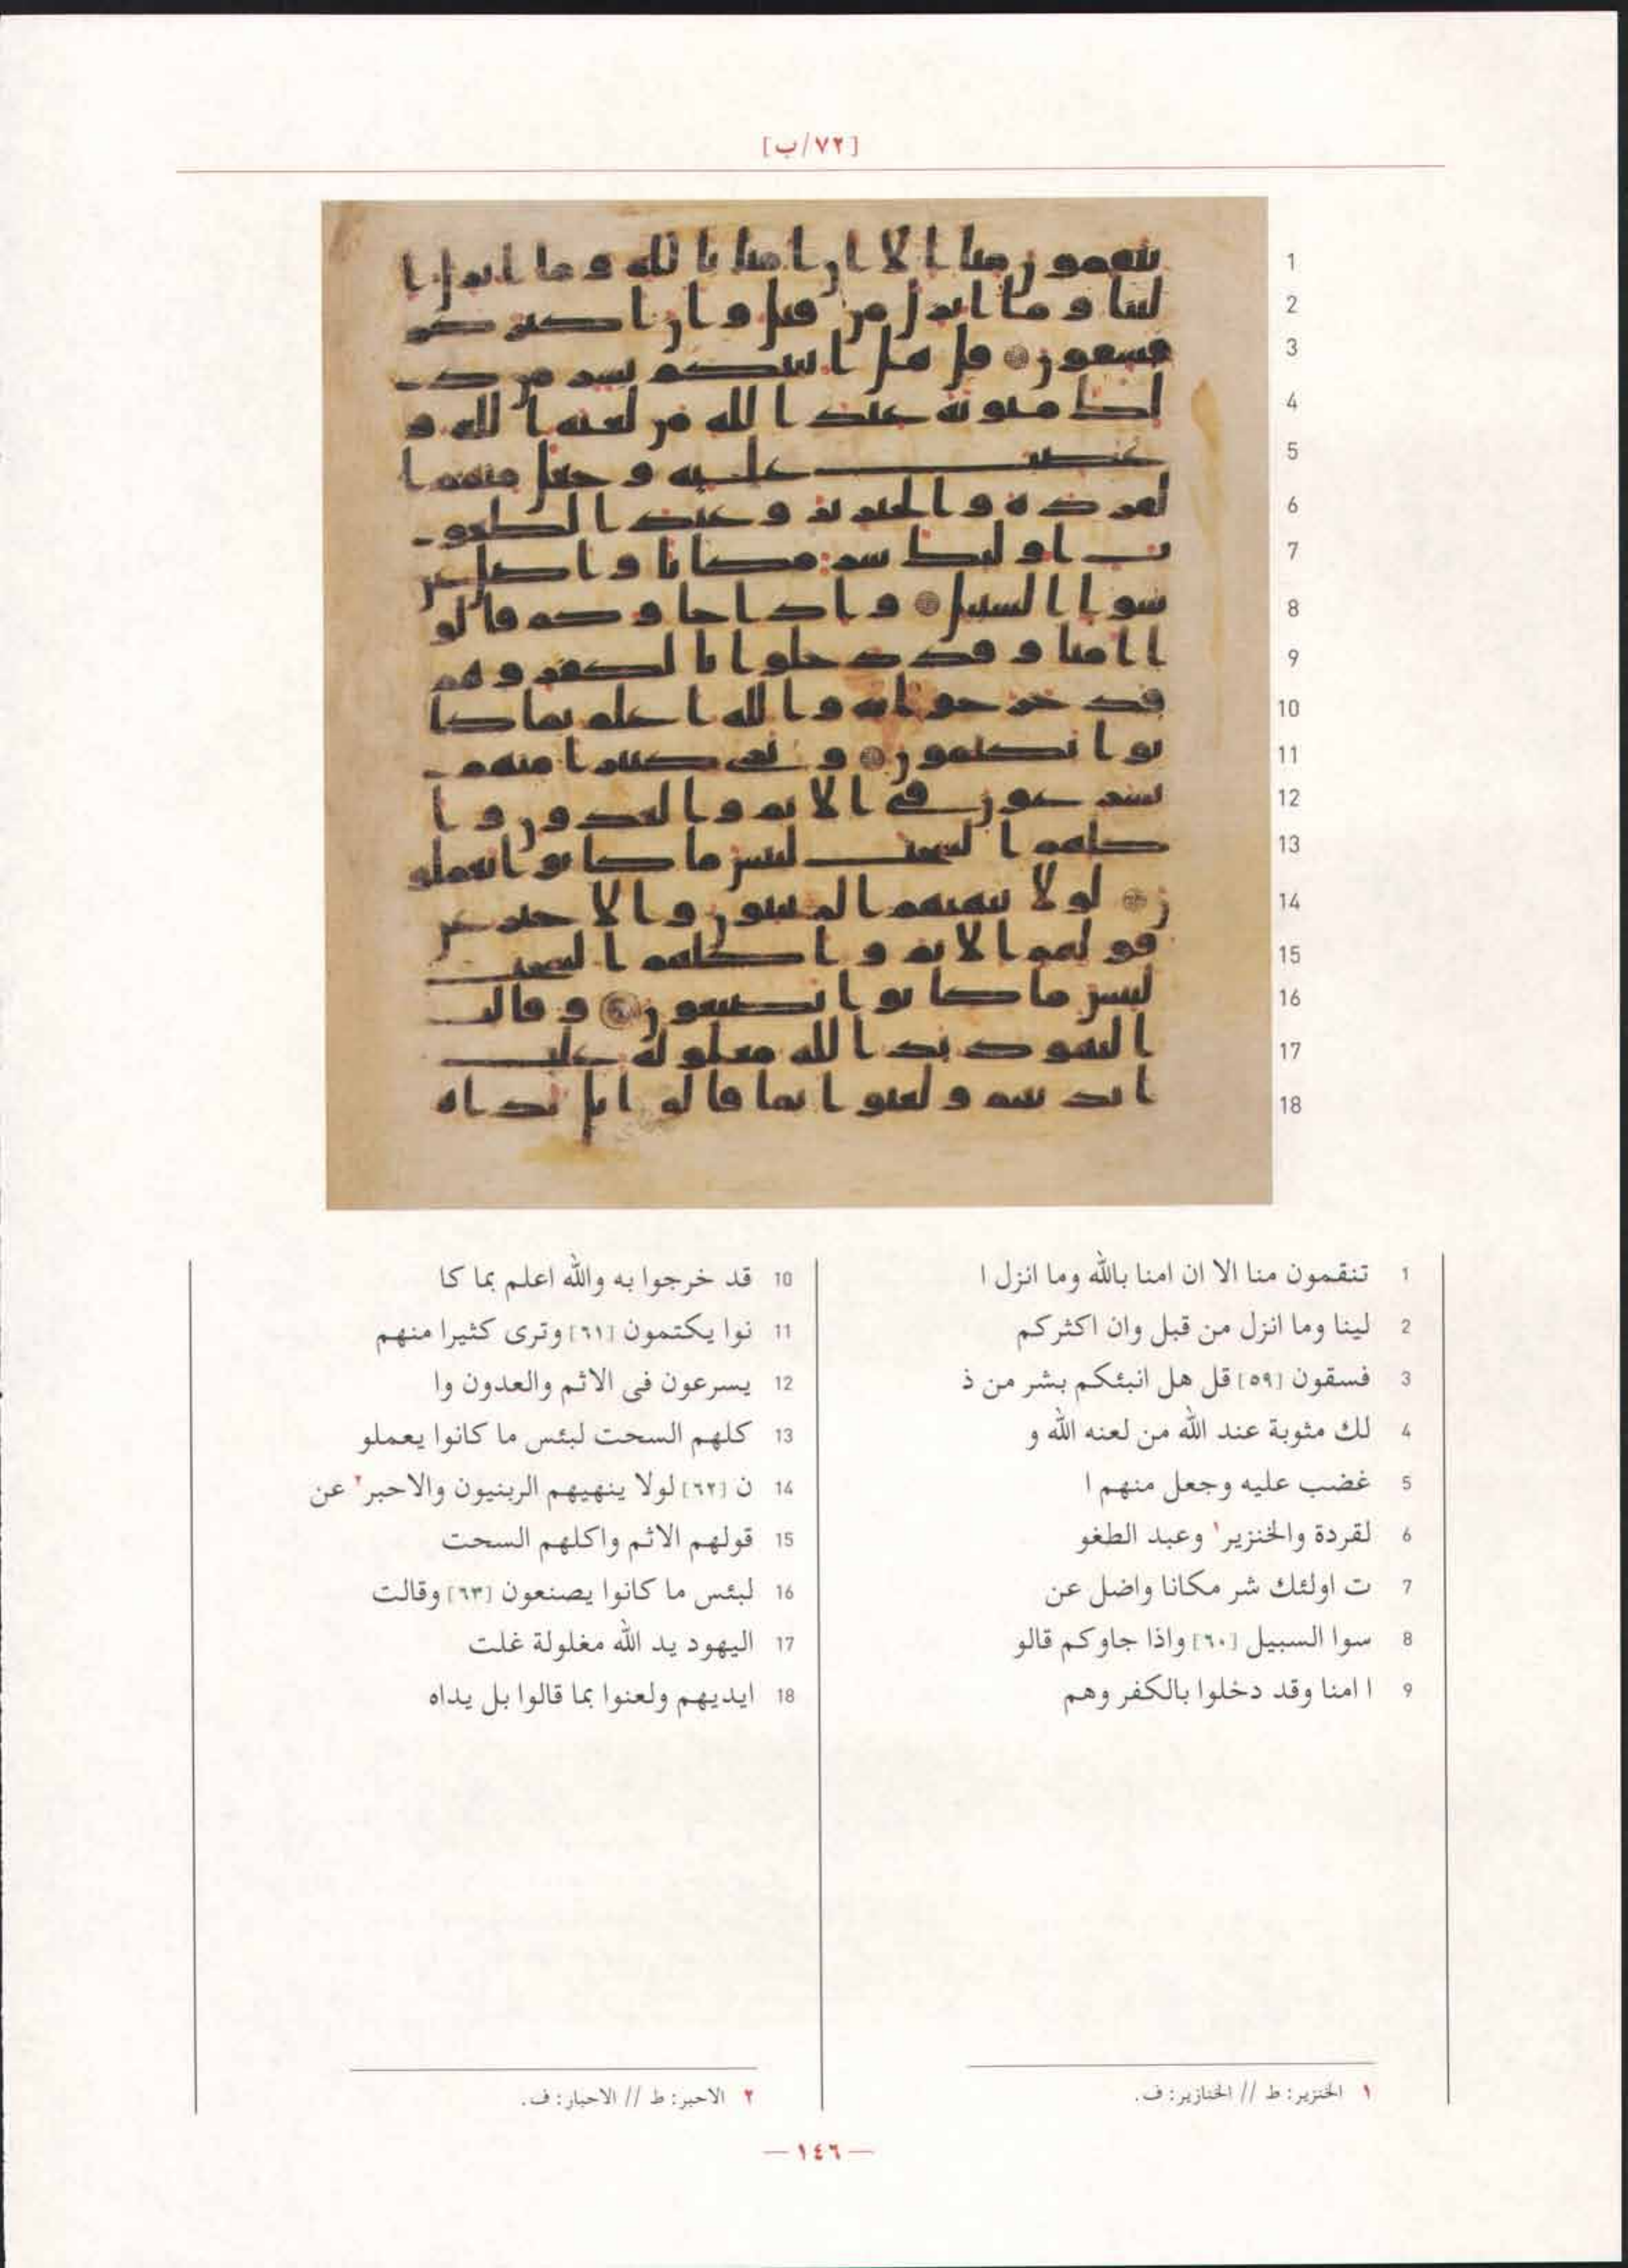 [٧٢/ب]
1
2
3
4
5
6
7
8
9
10
11
12
13
14
15
16
17
18
1 تنقمون منا الا ان امنا بالله وما انزل ا
2 لينا وما انزل من قبل وان اكثركم
3 فسقون [٥٩] قل هل انبئكم بشر من ذ
4 لك مثوبة عند الله من لعنه الله و
5 غضب عليه وجعل منهم ا
6 لقردة والخنزير١ وعبد الطغو
7 ت اولئك شر مكانا واضل عن
8 سوا السبيل [٦٠] واذا جاوكم قالو
9 ا امنا وقد دخلوا بالكفر وهم
10 قد خرجوا به والله اعلم بما كا
11 نوا يكتمون [٦١] وترى كثيرا منهم
12 يسرعون فى الاثم والعدون وا
13 كلهم السحت لبئس ما كانوا يعملو
14 ن [٦٢] لولا ينهيهم الربنيون والاحبر٢ عن
15 قولهم الاثم واكلهم السحت
16 لبئس ما كانوا يصنعون [٦٣] وقالت
17 اليهود يد الله مغلولة غلت
18 ايديهم ولعنوا بما قالوا بل يداه
١ الخنزير: ط // الخنازير: ف.
٢ الاحبر: ط // الاحبار: ف.
— ١٤٦ —